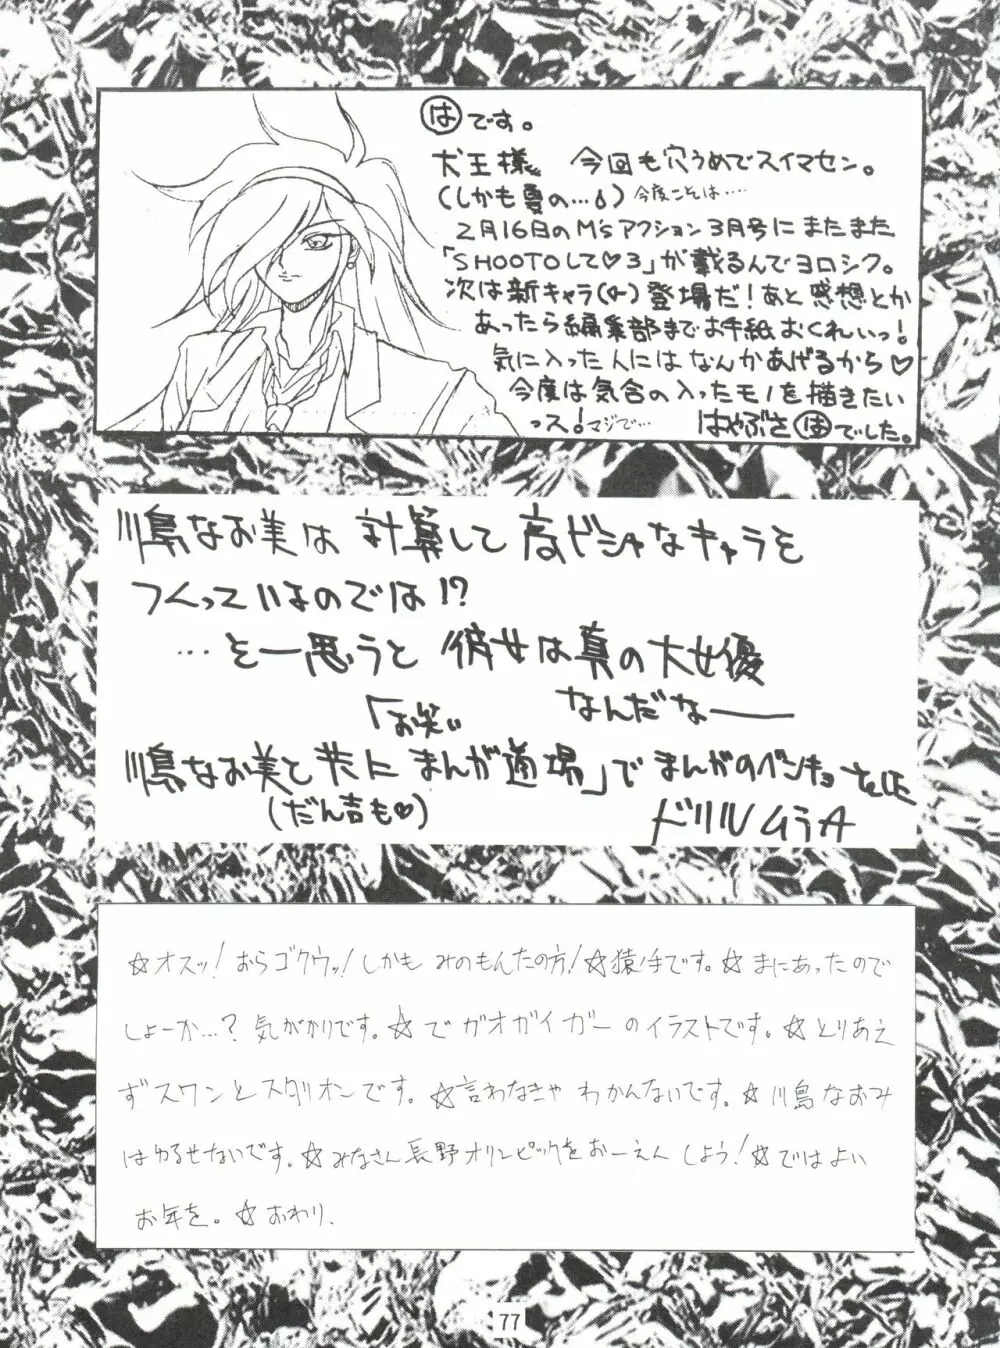 はです。
犬王様 今回も穴うめでスイマセン。
(しかも夏の…) 今度こそは‥‥
2月16日のM'sアクション3月号にまたまた
「SHOOTOして♡3」が載るんでヨロシク。
次は新キャラ(♀)登場だ!あと感想とか
あったら編集部までお手紙おくれいっ!
気に入った人にはなんかあげるから♡
今度は気合の入ったモノを描きたい
っス!マジで…  はやぶさはでした。
川島なお美は計算して高ビシャなキャラを
つくっているのでは!?
…と一思うと 彼女は真の大女優
なんだなー
「お笑い
川島なお美と共にまんが道場」でまんがのベンキョーをした
(だん吉も♡)
ドリルムラA
☆オスッ!おらゴクウッ!しかもみのもんたの方!☆猿手です。☆まにあったので
しょーか…?気がかりです。☆でガオガイガーのイラストです。☆とりあえ
ずスワンとスタリオンです。☆言わなきゃわかんないです。☆川島なおみ
はゆるせないです。☆みなさん長野オリンピックをおーえんしよう!☆ではよい
お年を。☆おわり、
77